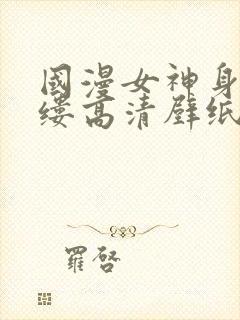 國漫女神身
縷高清壁紙
羅啓